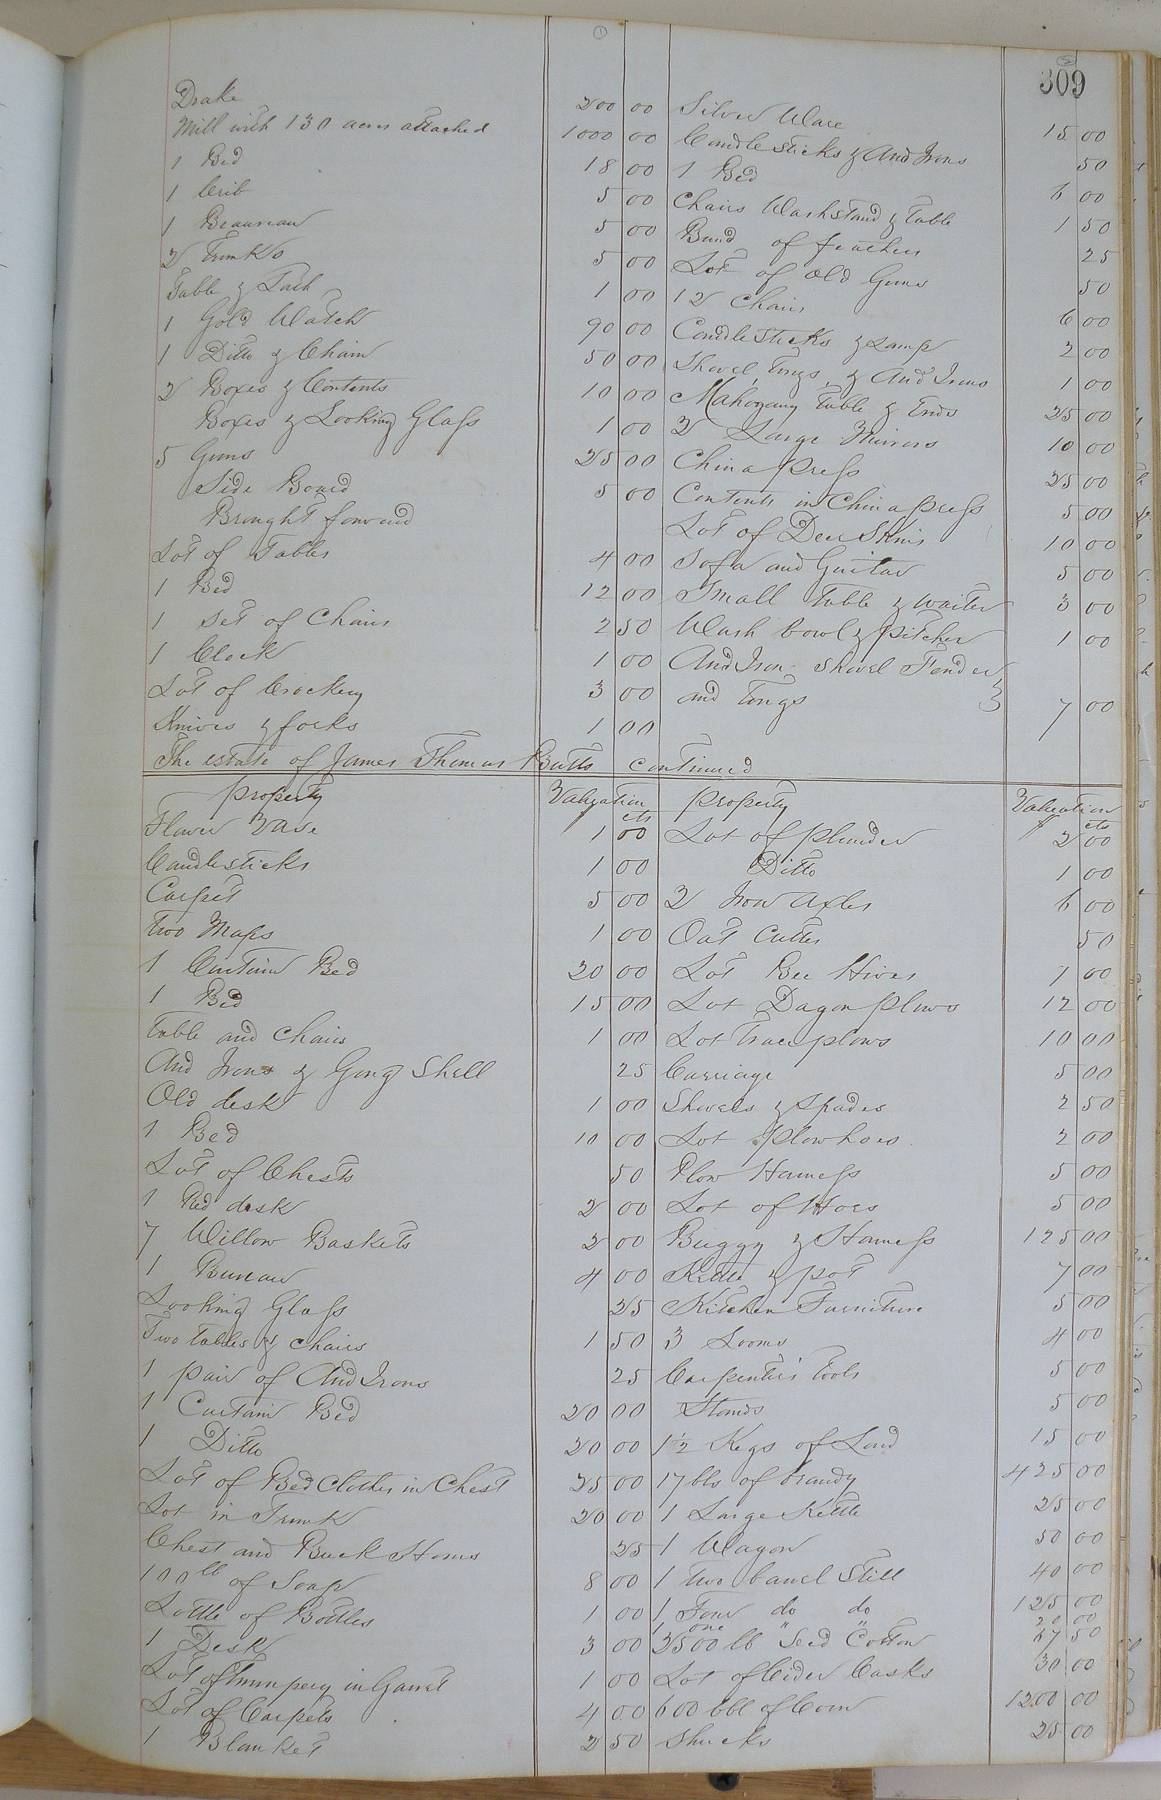 309
Drake 200 00 Silver Ware 15 00
Mill with 130 acres attached 1000 00 Candlesticks & And Irons 50
1 Bed 18 00 1 Bed 6 00
1 Crib 5 00 Chairs Washstand & Table 1 50
1 Beaureau 5 00 Bund of feathers 25
2 Trunks 5 00 Lot of Old Guns 50
Table & 1 00 12 Chairs 6 00
1 Gold Watch 90 00 Candlesticks & Lamp 2 00
1 Ditto & Chain 50 00 Shovel Tongs & And Irons 1 00
2 Boxes & Contents 10 00 Mahogany Table & Ends 25 00
Boxes & Looking Glass 1 00 2 Large Mirrors 10 00
5 Guns 25 00 China Press 25 00
Side Board 5 00 Contents in China press 5 00
Brought forward Lot of Deer Skins 10 00
Lot of Tables 4 00 Sofa and Guitar 5 00
1 Bed 12 00 Small Table & Waiter 3 00
1 Set of Chairs 2 50 Wash bowl & pitcher 1 00
1 Clock 1 00 And Iron Shovel Fender
Lot of Crockery 3 00 and Tongs 7 00
Knives & forks 1 00
The estate of James Thomas Butts continued
Property Valuation Property Valuation
cts $ cts
Flower Vase 1 00 Lot of plunder 2 00
Candlesticks 1 00 Ditto 1 00
Carpet 5 00 2 Iron Axles 6 00
two Maps 1 00 Oat Cutter 50
1 Curtain Bed 20 00 Lot Bee Hives 1 00
1 Bed 15 00 Lot Dagon plows 12 00
Table and Chairs 1 00 Lot Trace plows 10 00
And Irons & Gong Shell 25 Carriage 5 00
Old desk 1 00 Shovels & Spades 2 50
1 Bed 10 00 Lot plowhoes 2 00
Lot of Chests 50 Plow Harness 5 00
1 Red desk 2 00 Lot of Hoes 5 00
7 Willow Baskets 2 00 Buggy & Harness 125 00
1 Bureau 4 00 Kettle & pot 7 00
Looking Glass 25 Kitchen Furniture 5 00
Two tables & chairs 1 50 3 Looms 4 00
1 pair of And Irons 25 Carpenters tools 5 00
1 Curtain Bed 20 00 Stands 5 00
1 Ditto 20 00 1½ Kegs of Lard 15 00
Lot of Bed Clothes in Chest 25 00 17 bls of brandy 425 00
Lot in Trunk 20 00 1 Large Kettle 25 00
Chest and Buck Horns 25 1 Wagon 50 00
100 lb of Soap 8 00 1 two barrel Still 40 00
Lottle of Bottles 1 00 1 Four do do 125 00
one " " 20 00
1 Desk 3 00 3500 lb Seed Cotton 87 50
Lot of Trumpery in Garret 1 00 Lot of Cider Casks 30 00
Lot of Carpets 4 00 600 bbl of Corn 1200 00
1 Blanket 2 50 Shucks 25 00